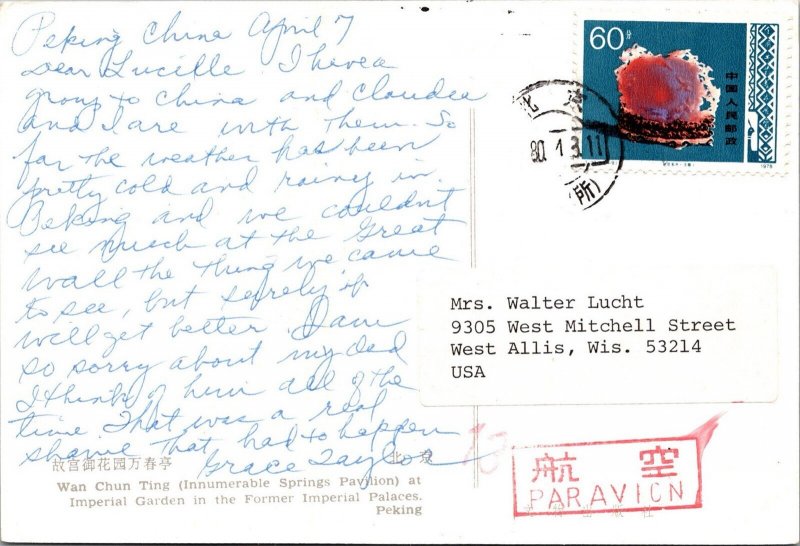 Peking China April 7
Dear Lucille I have a
group to China and Claudea
and I are with them. So
far the weather has been
pretty cold and rainy in
Peking and we couldn't
see much at the Great
Wall the thing we came
to see, but surely it
will get better. I am
so sorry about my dad
I think of him all of the
time. That was a real
shame that had to happen
Grace Taylor
故宫御花园万春亭 北京
Wan Chun Ting (Innumerable Springs Pavilion) at
Imperial Garden in the Former Imperial Palaces.
Peking
60分
中国人民邮政
1978
北
80.4
11
(所)
Mrs. Walter Lucht
9305 West Mitchell Street
West Allis, Wis. 53214
USA
航空
PAR AVION